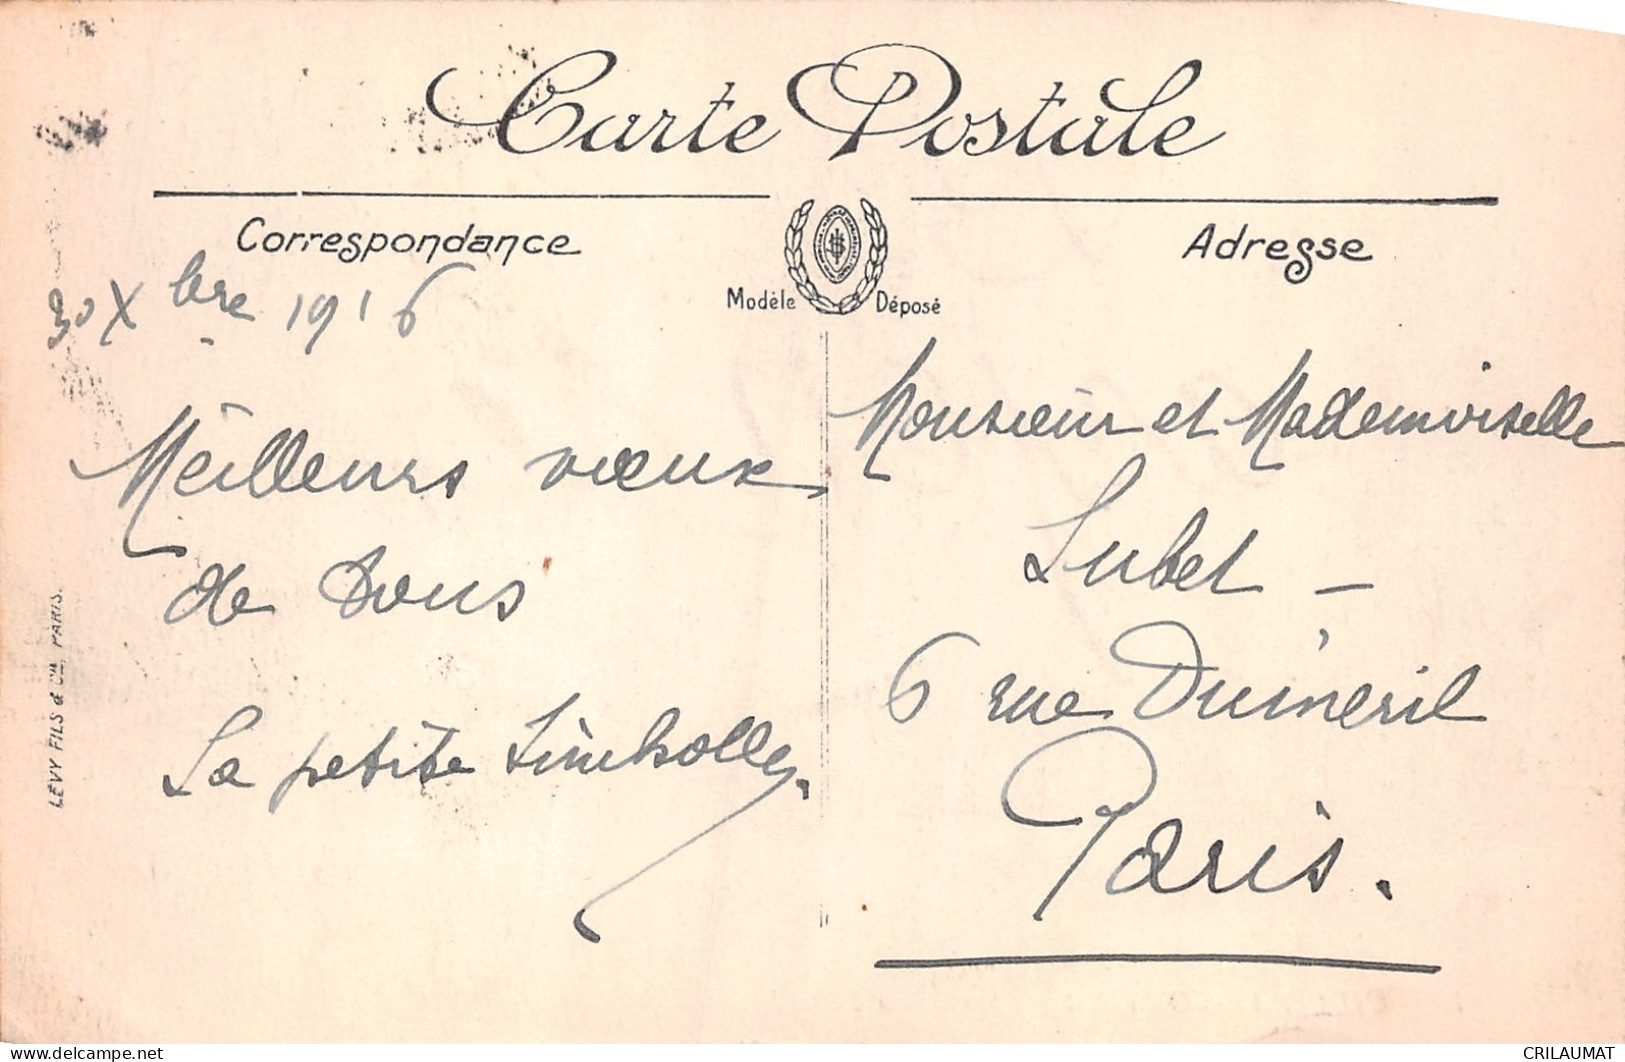 Carte Postale
Correspondance
Adresse
Modèle Déposé
30 Xbre 1916
Meilleurs vœux
de tous
La petite
Monsieur et Mademoiselle
Lubet –
6 rue Duméril
Paris.
LEVY FILS & Cie, PARIS.
CRILAUMAT